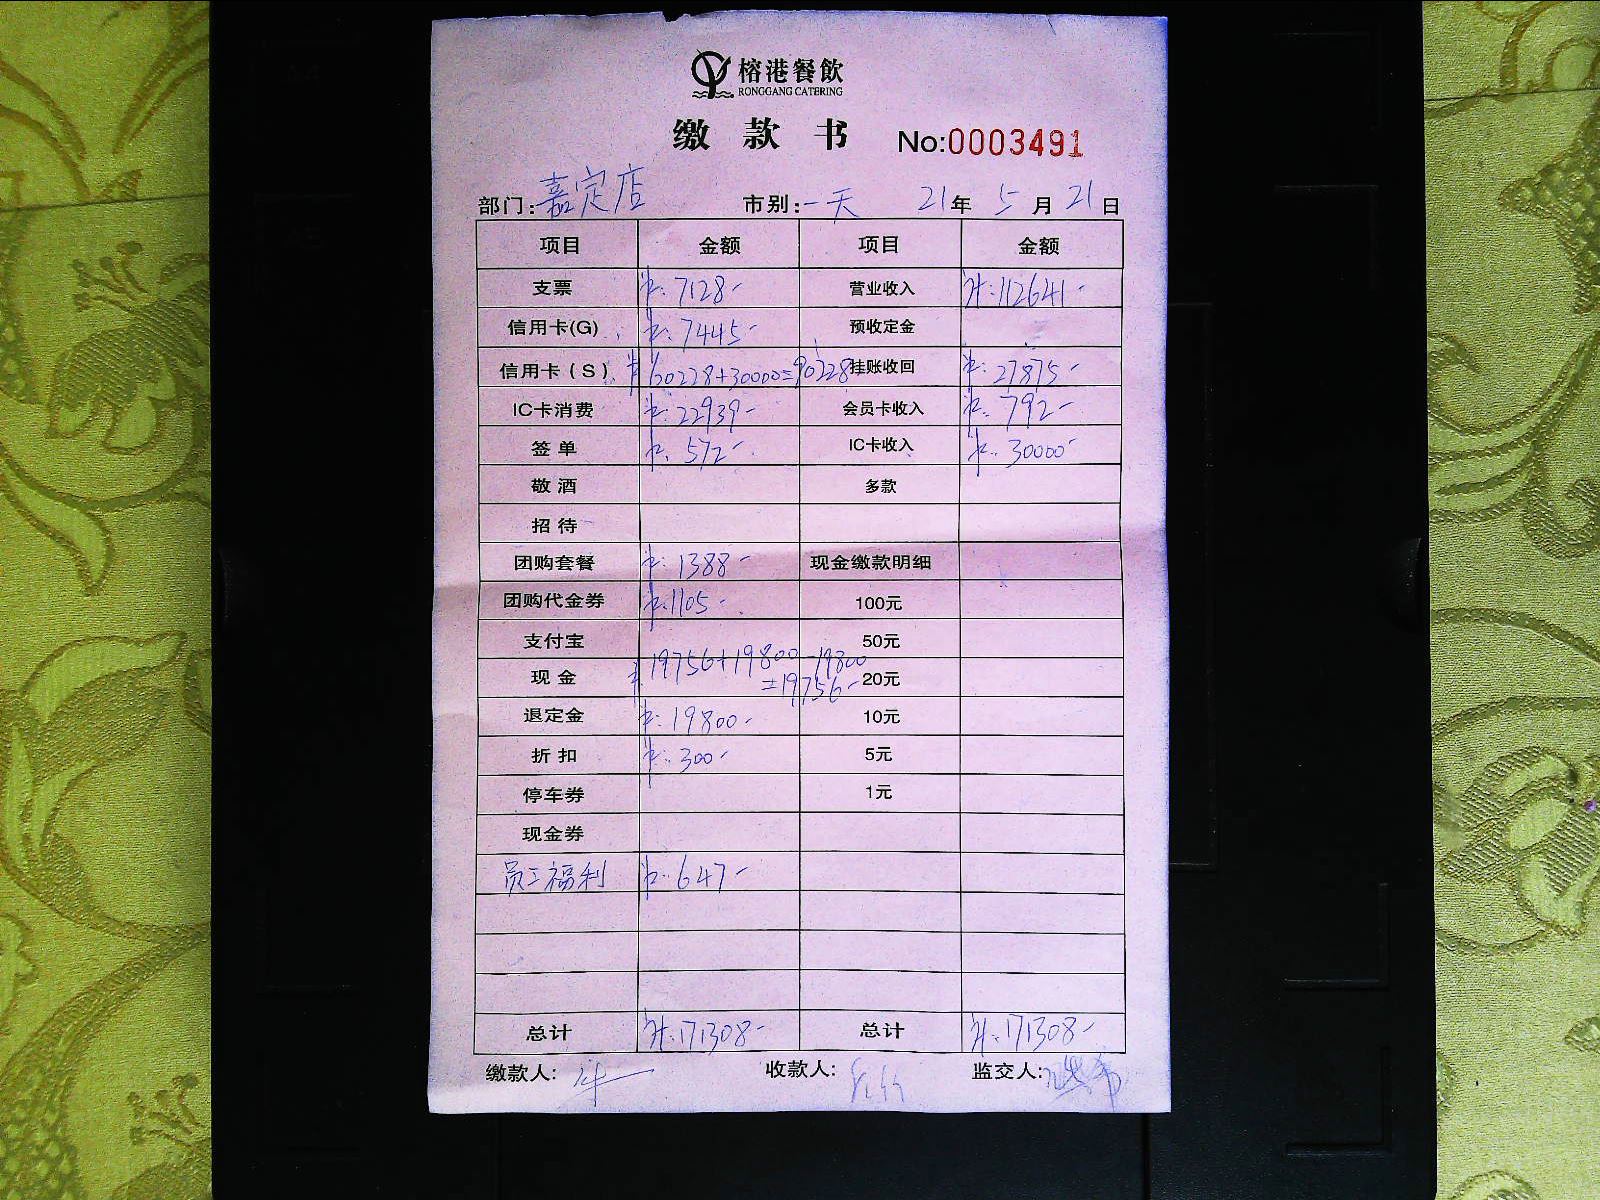 榕港餐飲
RONGGANG CATERING
缴款书 No:0003491
部门:嘉定店 市别:一天 21年5月21日
项目 金额 项目 金额
支票 ¥:7128- 营业收入 ¥:112641-
信用卡(G) ¥:7445- 预收定金
信用卡(S) ¥60228+30000=90228 挂账收回 ¥:27875-
IC卡消费 ¥:22939- 会员卡收入 ¥:792-
签单 ¥:572- IC卡收入 ¥:30000-
敬酒 多款
招待
团购套餐 ¥:1388- 现金缴款明细
团购代金券 ¥:1105- 100元
支付宝 50元
现金 ¥:19756+19800-19800=19756- 20元
退定金 ¥:19800- 10元
折扣 ¥:300- 5元
停车券 1元
现金券
员工福利 ¥:647-
总计 ¥:171308- 总计 ¥:171308-
缴款人: 收款人: 监交人: